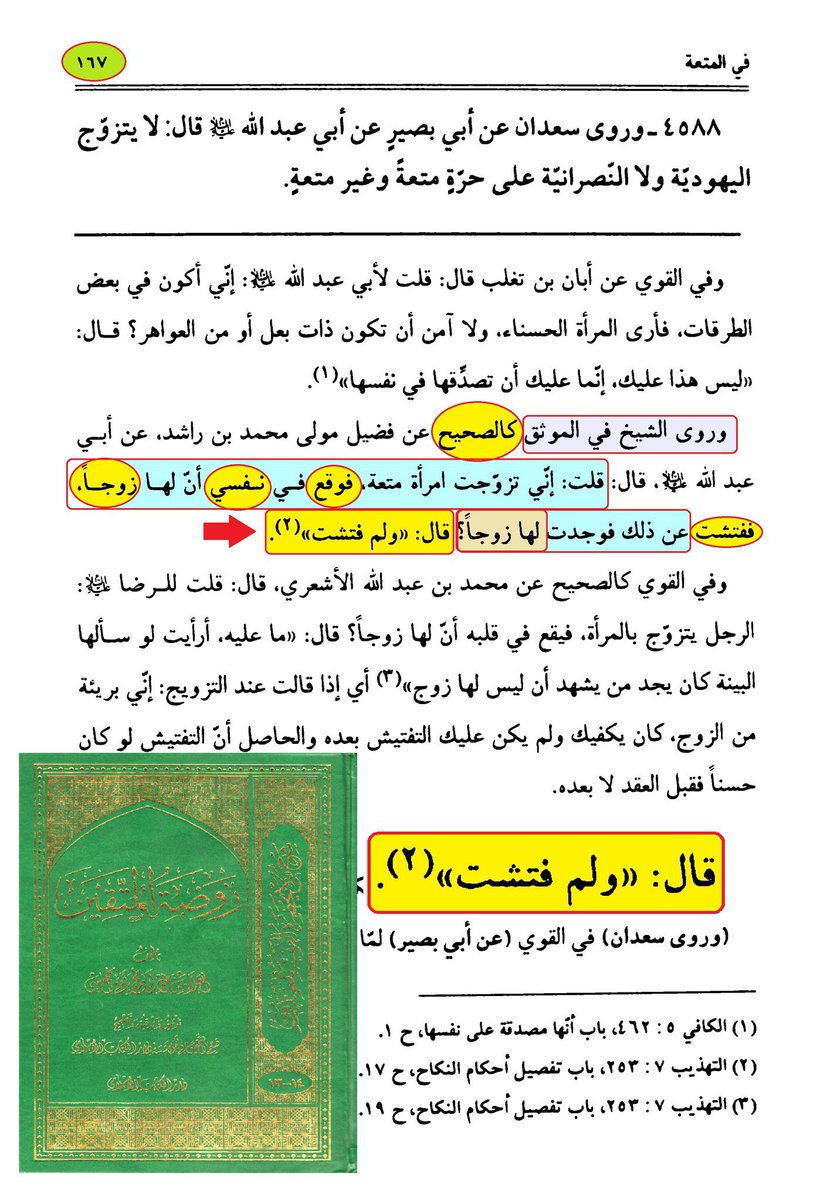 في المتعة
١٦٧
٤٥٨٨ ـ وروى سعدان عن أبي بصيرٍ عن أبي عبد الله عليه السلام قال: لا يتزوّج
اليهوديّة ولا النّصرانيّة على حرّةٍ متعةً وغير متعةٍ.
وفي القوي عن أبان بن تغلب قال: قلت لأبي عبد الله عليه السلام: إنّي أكون في بعض
الطرقات، فأرى المرأة الحسناء، ولا آمن أن تكون ذات بعل أو من العواهر؟ قـال:
«ليس هذا عليك، إنّما عليك أن تصدِّقها في نفسها»(١).
وروى الشيخ في الموثق كالصحيح عن فضيل مولى محمد بن راشد، عن أبـي
عبد الله عليه السلام، قال: قلت: إنّي تزوّجت امرأة متعة، فوقع فـي نـفسي أنّ لهـا زوجـاً،
ففتشت عن ذلك فوجدت لها زوجاً؟ قال: «ولم فتشت»(٢).
وفي القوي كالصحيح عن محمد بن عبد الله الأشعري، قال: قلت للـرضا عليه السلام:
الرجل يتزوّج بالمرأة، فيقع في قلبه أنّ لها زوجاً؟ قال: «ما عليه، أرأيت لو سـألها
البينة كان يجد من يشهد أن ليس لها زوج»(٣) أي إذا قالت عند التزويج: إنّي بريئة
من الزوج، كان يكفيك ولم يكن عليك التفتيش بعده والحاصل أنّ التفتيش لو كان
حسناً فقبل العقد لا بعده.
قال: «ولم فتشت»(٢).
(وروى سعدان) في القوي (عن أبي بصير) لمّا
(١) الكافي ٥ : ٤٦٢، باب أنّها مصدقة على نفسها، ح ١.
(٢) التهذيب ٧ : ٢٥٣، باب تفصيل أحكام النكاح، ح ١٧.
(٣) التهذيب ٧ : ٢٥٣، باب تفصيل أحكام النكاح، ح ١٩.
روضة المتقين
١٣-١٤